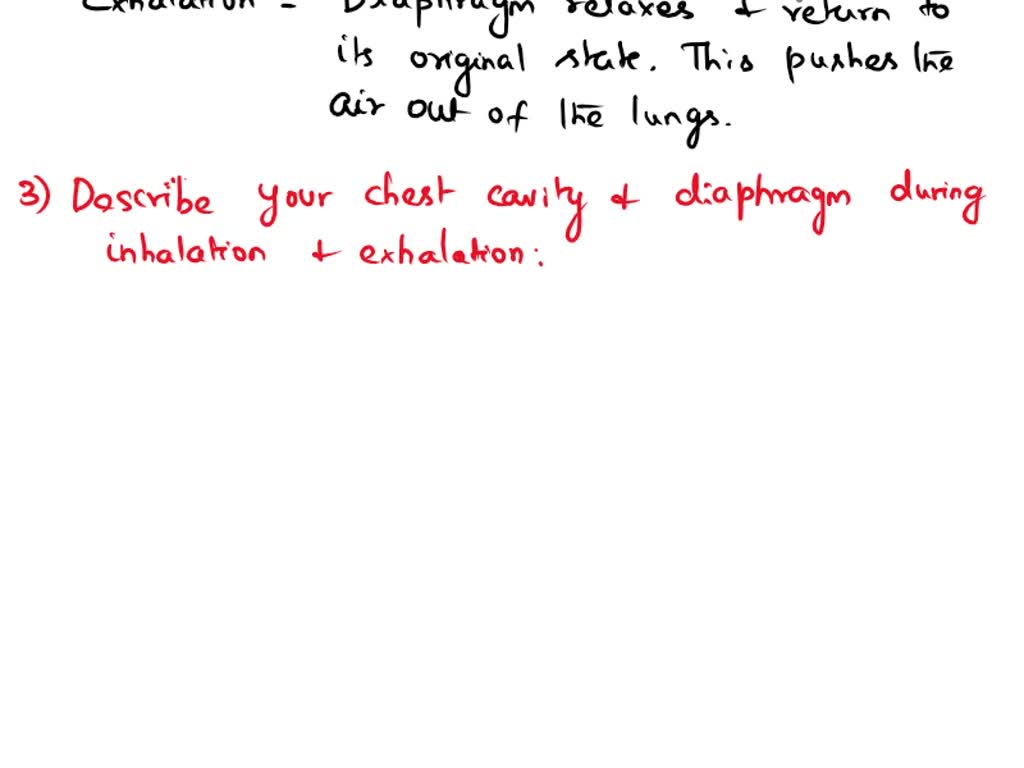 Exhalation = Diaphragm relaxes & return to
its original state. This pushes the
air out of the lungs.
3) Describe your chest cavity & diaphragm during
inhalation & exhalation: